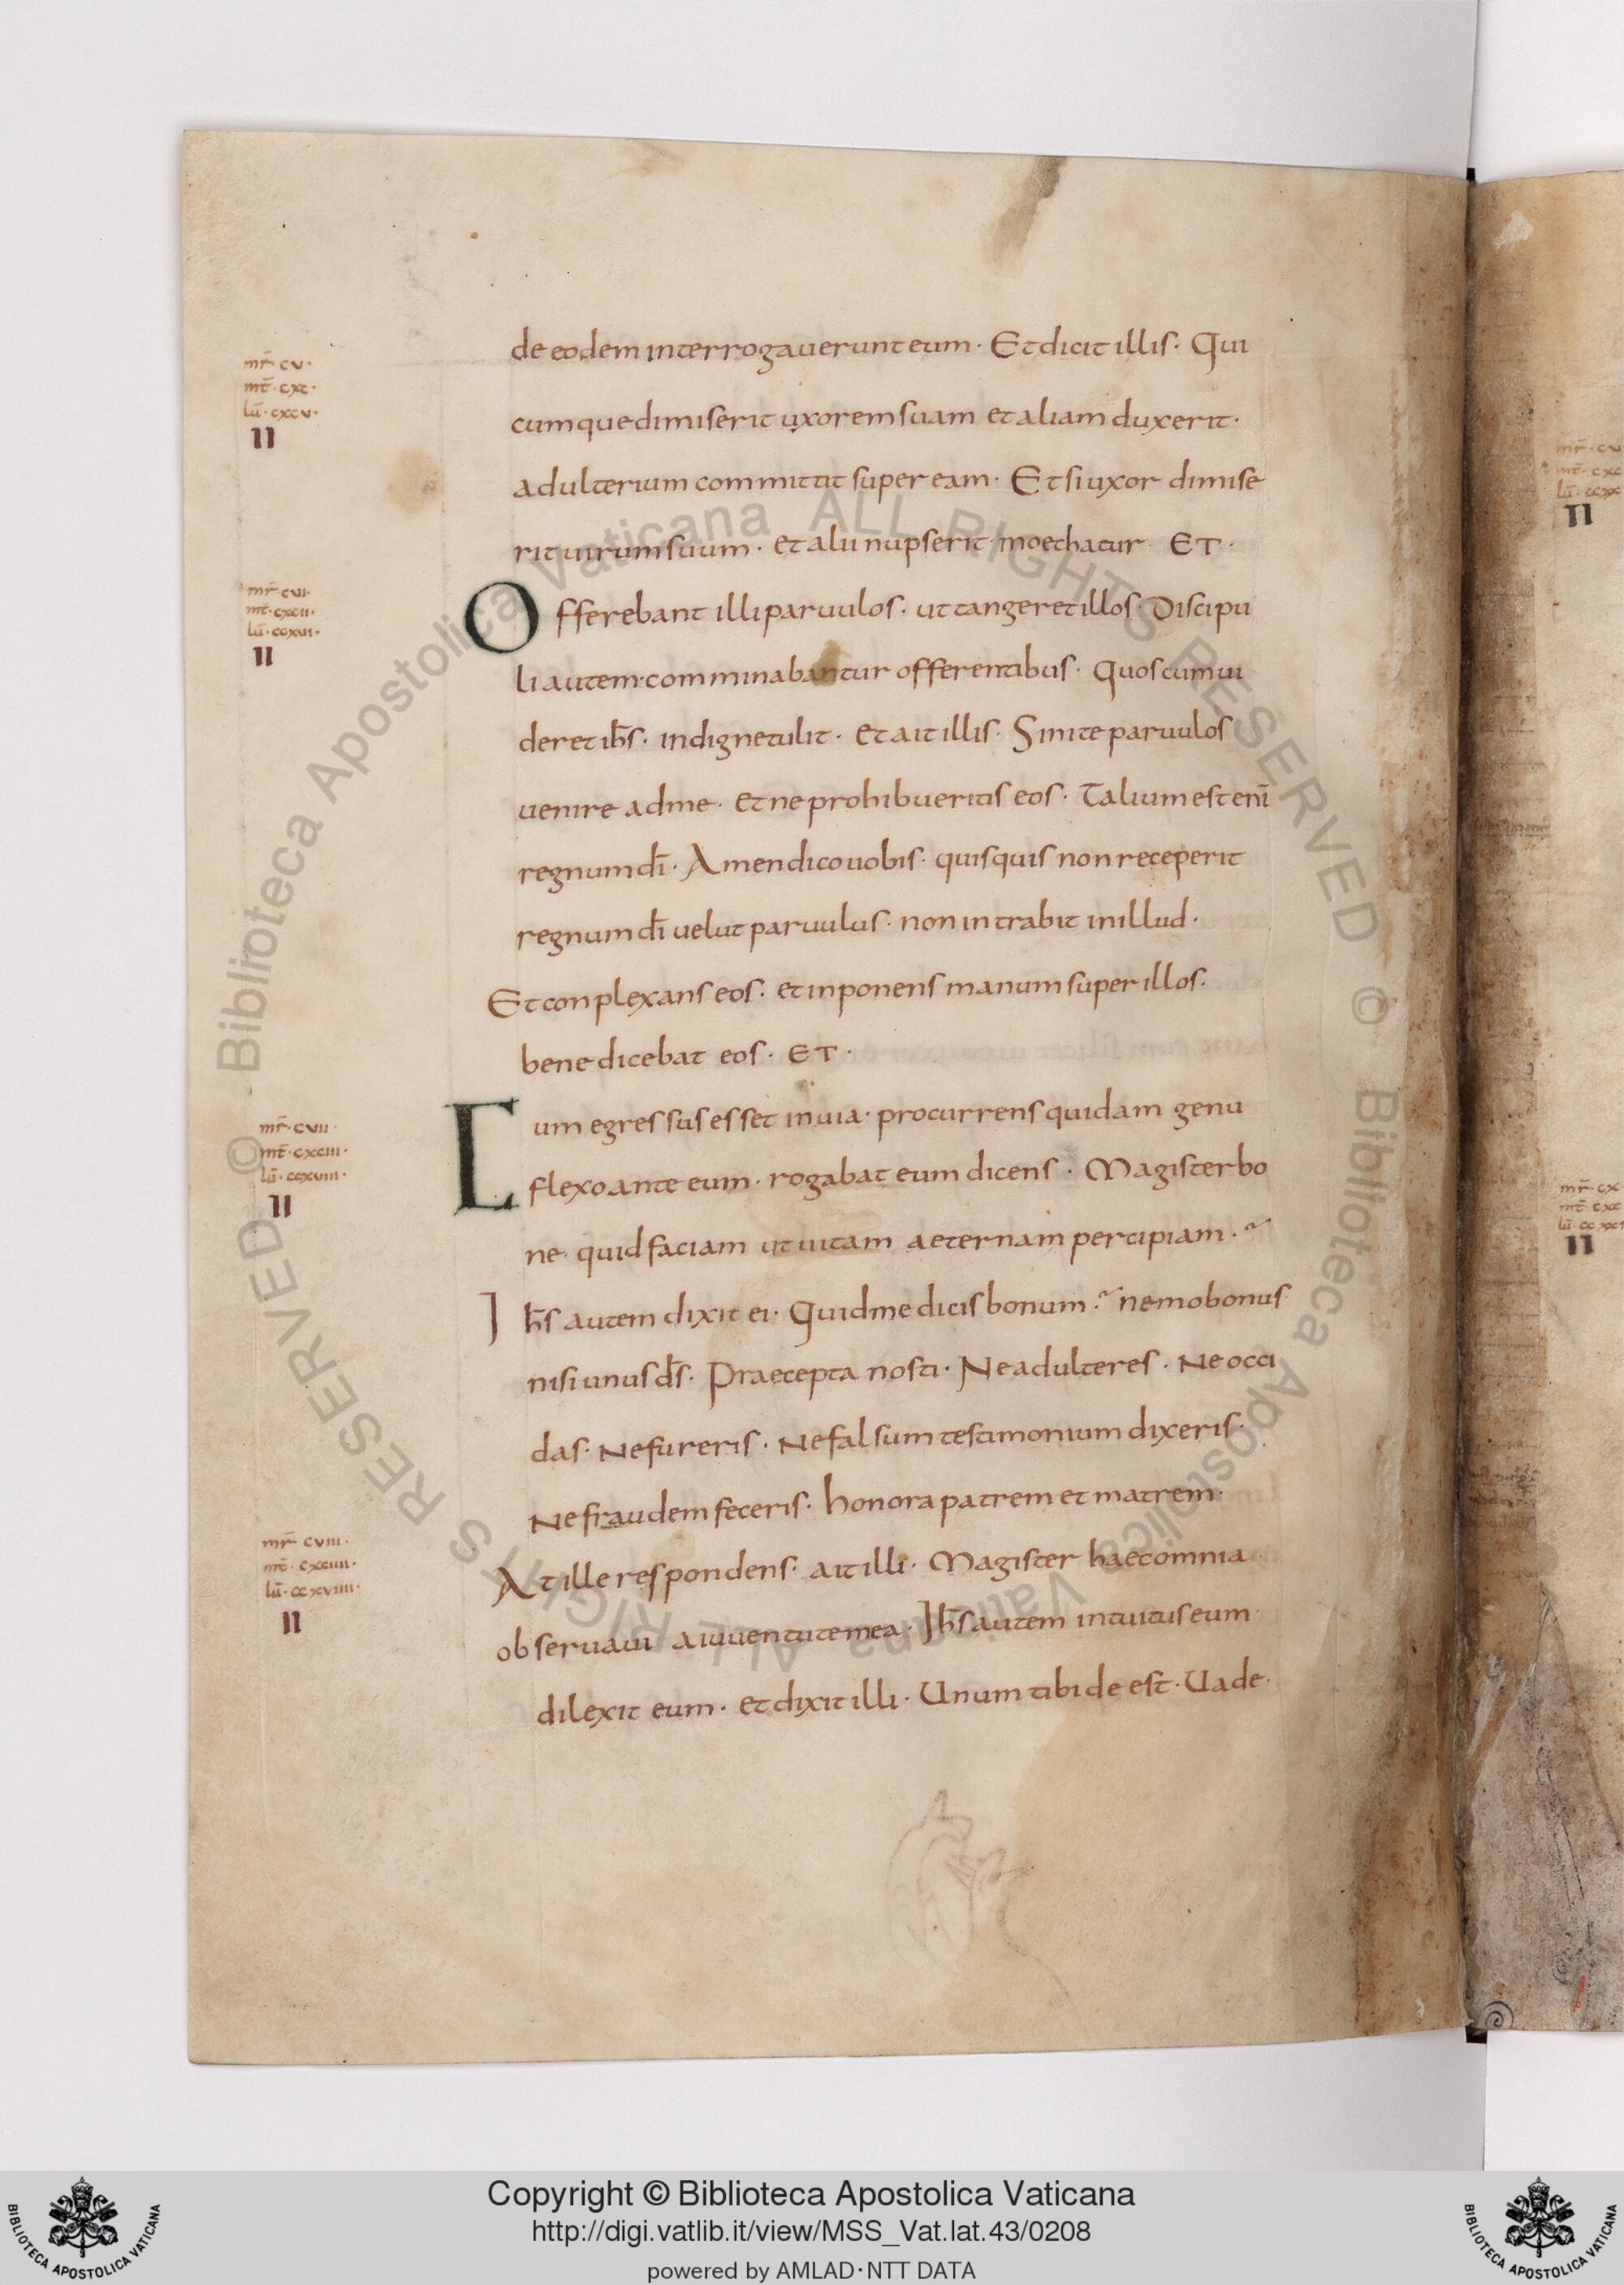 mr̄ · cv ·
mt̄ · cxc ·
lū · cxcv ·
II
de eodem interrogauerunt eum · Et dicit illis · Qui
cumque dimiserit uxorem suam et aliam duxerit ·
adulterium committit super eam · Et si uxor dimise
rit uirum suum · et alii nupserit moechatur ET ·
mr̄ · cvi ·
mt̄ · cxcii ·
lū · ccxvi ·
II
Offerebant illi paruulos · ut tangeret illos · Discipu
li autem comminabantur offerentibus · Quos cum ui
deret ih̄s · indigne tulit · et ait illis · Sinite paruulos
uenire ad me · et ne prohibueritis eos · Talium est eni̅
regnum dī · Amen dico uobis · quisquis non receperit
regnum dī uelut paruulus · non intrabit in illud ·
Et conplexans eos · et inponens manum super illos ·
benedicebat eos · ET ·
mr̄ · cvii ·
mt̄ · cxciii ·
lū · ccxviii ·
II
Cum egressus esset in uia · procurrens quidam genu
flexo ante eum · rogabat eum dicens · Magister bo
ne quid faciam ut uitam aeternam percipiam ·~
Ih̄s autem dixit ei · Quid me dicis bonum ·~ nemo bonus
nisi unus d̄s · Praecepta nosti · Ne adulteres · Ne occi
das · Ne fureris · Ne falsum testimonium dixeris ·
Ne fraudem feceris · honora patrem et matrem ·
mr̄ cviii ·
mt̄ · cxciiii ·
lū · ccxviiii ·
II
At ille respondens · ait illi · Magister haec omnia ·
obseruaui a iuuentute mea · Ih̄s autem intuitus eum
dilexit eum · et dixit illi · Unum tibi deest · Uade ·
© Biblioteca Apostolica Vaticana ALL RIGHTS RESERVED
© Biblioteca Apostolica Vaticana ALL RIGHTS RESERVED
Copyright © Biblioteca Apostolica Vaticana
http://digi.vatlib.it/view/MSS_Vat.lat.43/0208
powered by AMLAD·NTT DATA
BIBLIOTECA APOSTOLICA VATICANA
BIBLIOTECA APOSTOLICA VATICANA